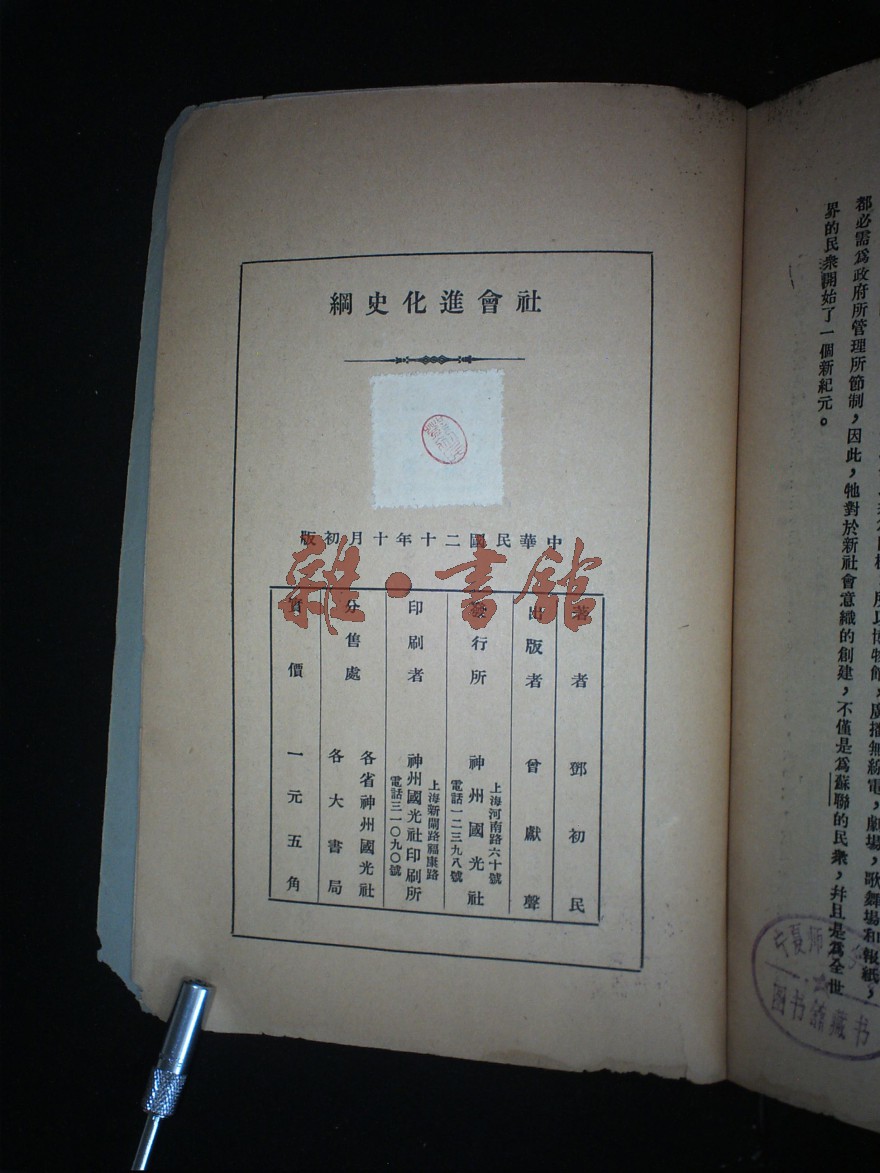 社會進化史綱
中華民國二十年十月初版
雜·書館
著者 鄧初民
出版者 曾獻聲
發行所 神州國光社
上海河南路六十號
電話一二三九八號
印刷者 神州國光社印刷所
上海新閘路福康路
電話三一〇九〇號
分售處 各省神州國光社
各大書局
實價 一元五角
都必需爲政府所管理所節制,因此,牠對於新社會意織的創建,不僅是爲蘇聯的民衆,幷且是爲全世
界的民衆開始了一個新紀元。
所以博物館,廣播無綫電,劇場,歌舞場和報紙,
图书舘藏书